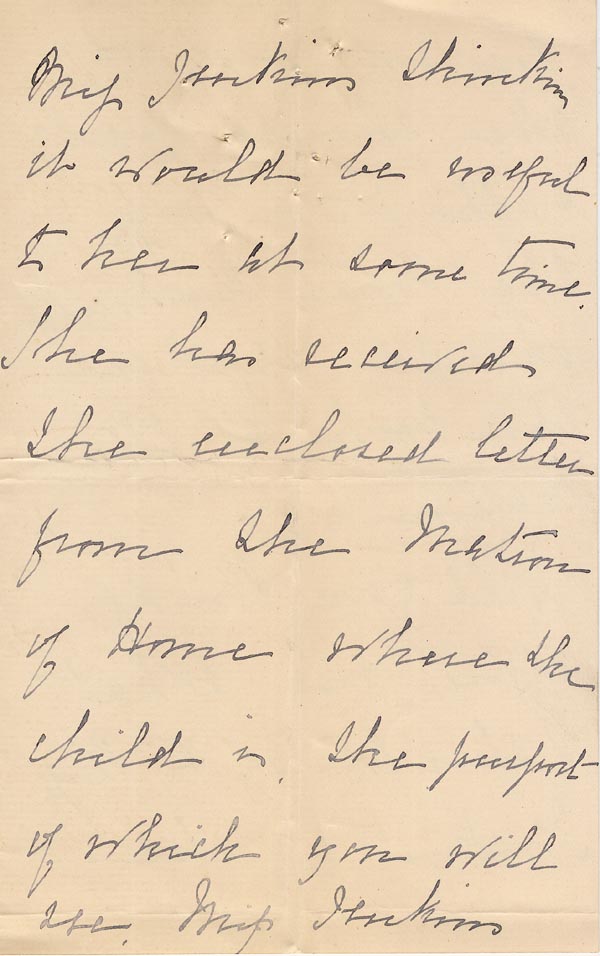 Miss Jenkins thinking
it would be useful
to her at some time.
She has received
the enclosed letter
from the Matron
of Home where the
child is, the purport
of which you will
see. Miss Jenkins